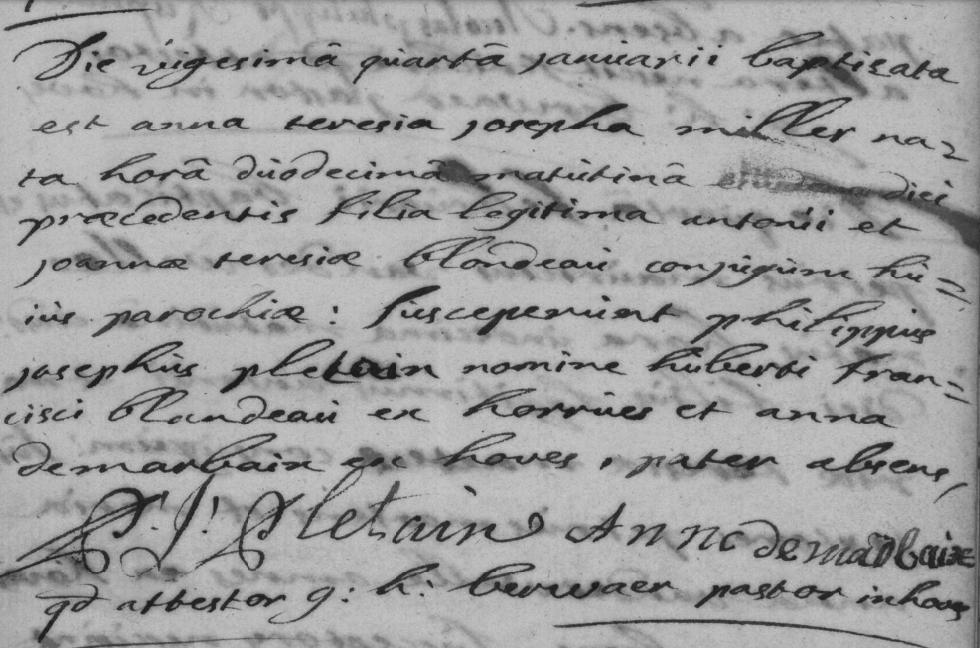 Die vigesimâ quartâ januarii baptisata
est anna teresia josepha miller na=
ta horâ duodecimâ matutinâ diei
præcedentis filia legitima antonii et
joannæ teresiæ blondeau conjugum hu=
ius parochiæ : susceperunt philippus
josephus pletain nomine huberti fran=
cisci blandeau ex horrues et anna
demarbaix ex hoves, pater absens,
P: J: Pletain Anne demarbaix
qd attestor g: h: berwaer pastor in hoves